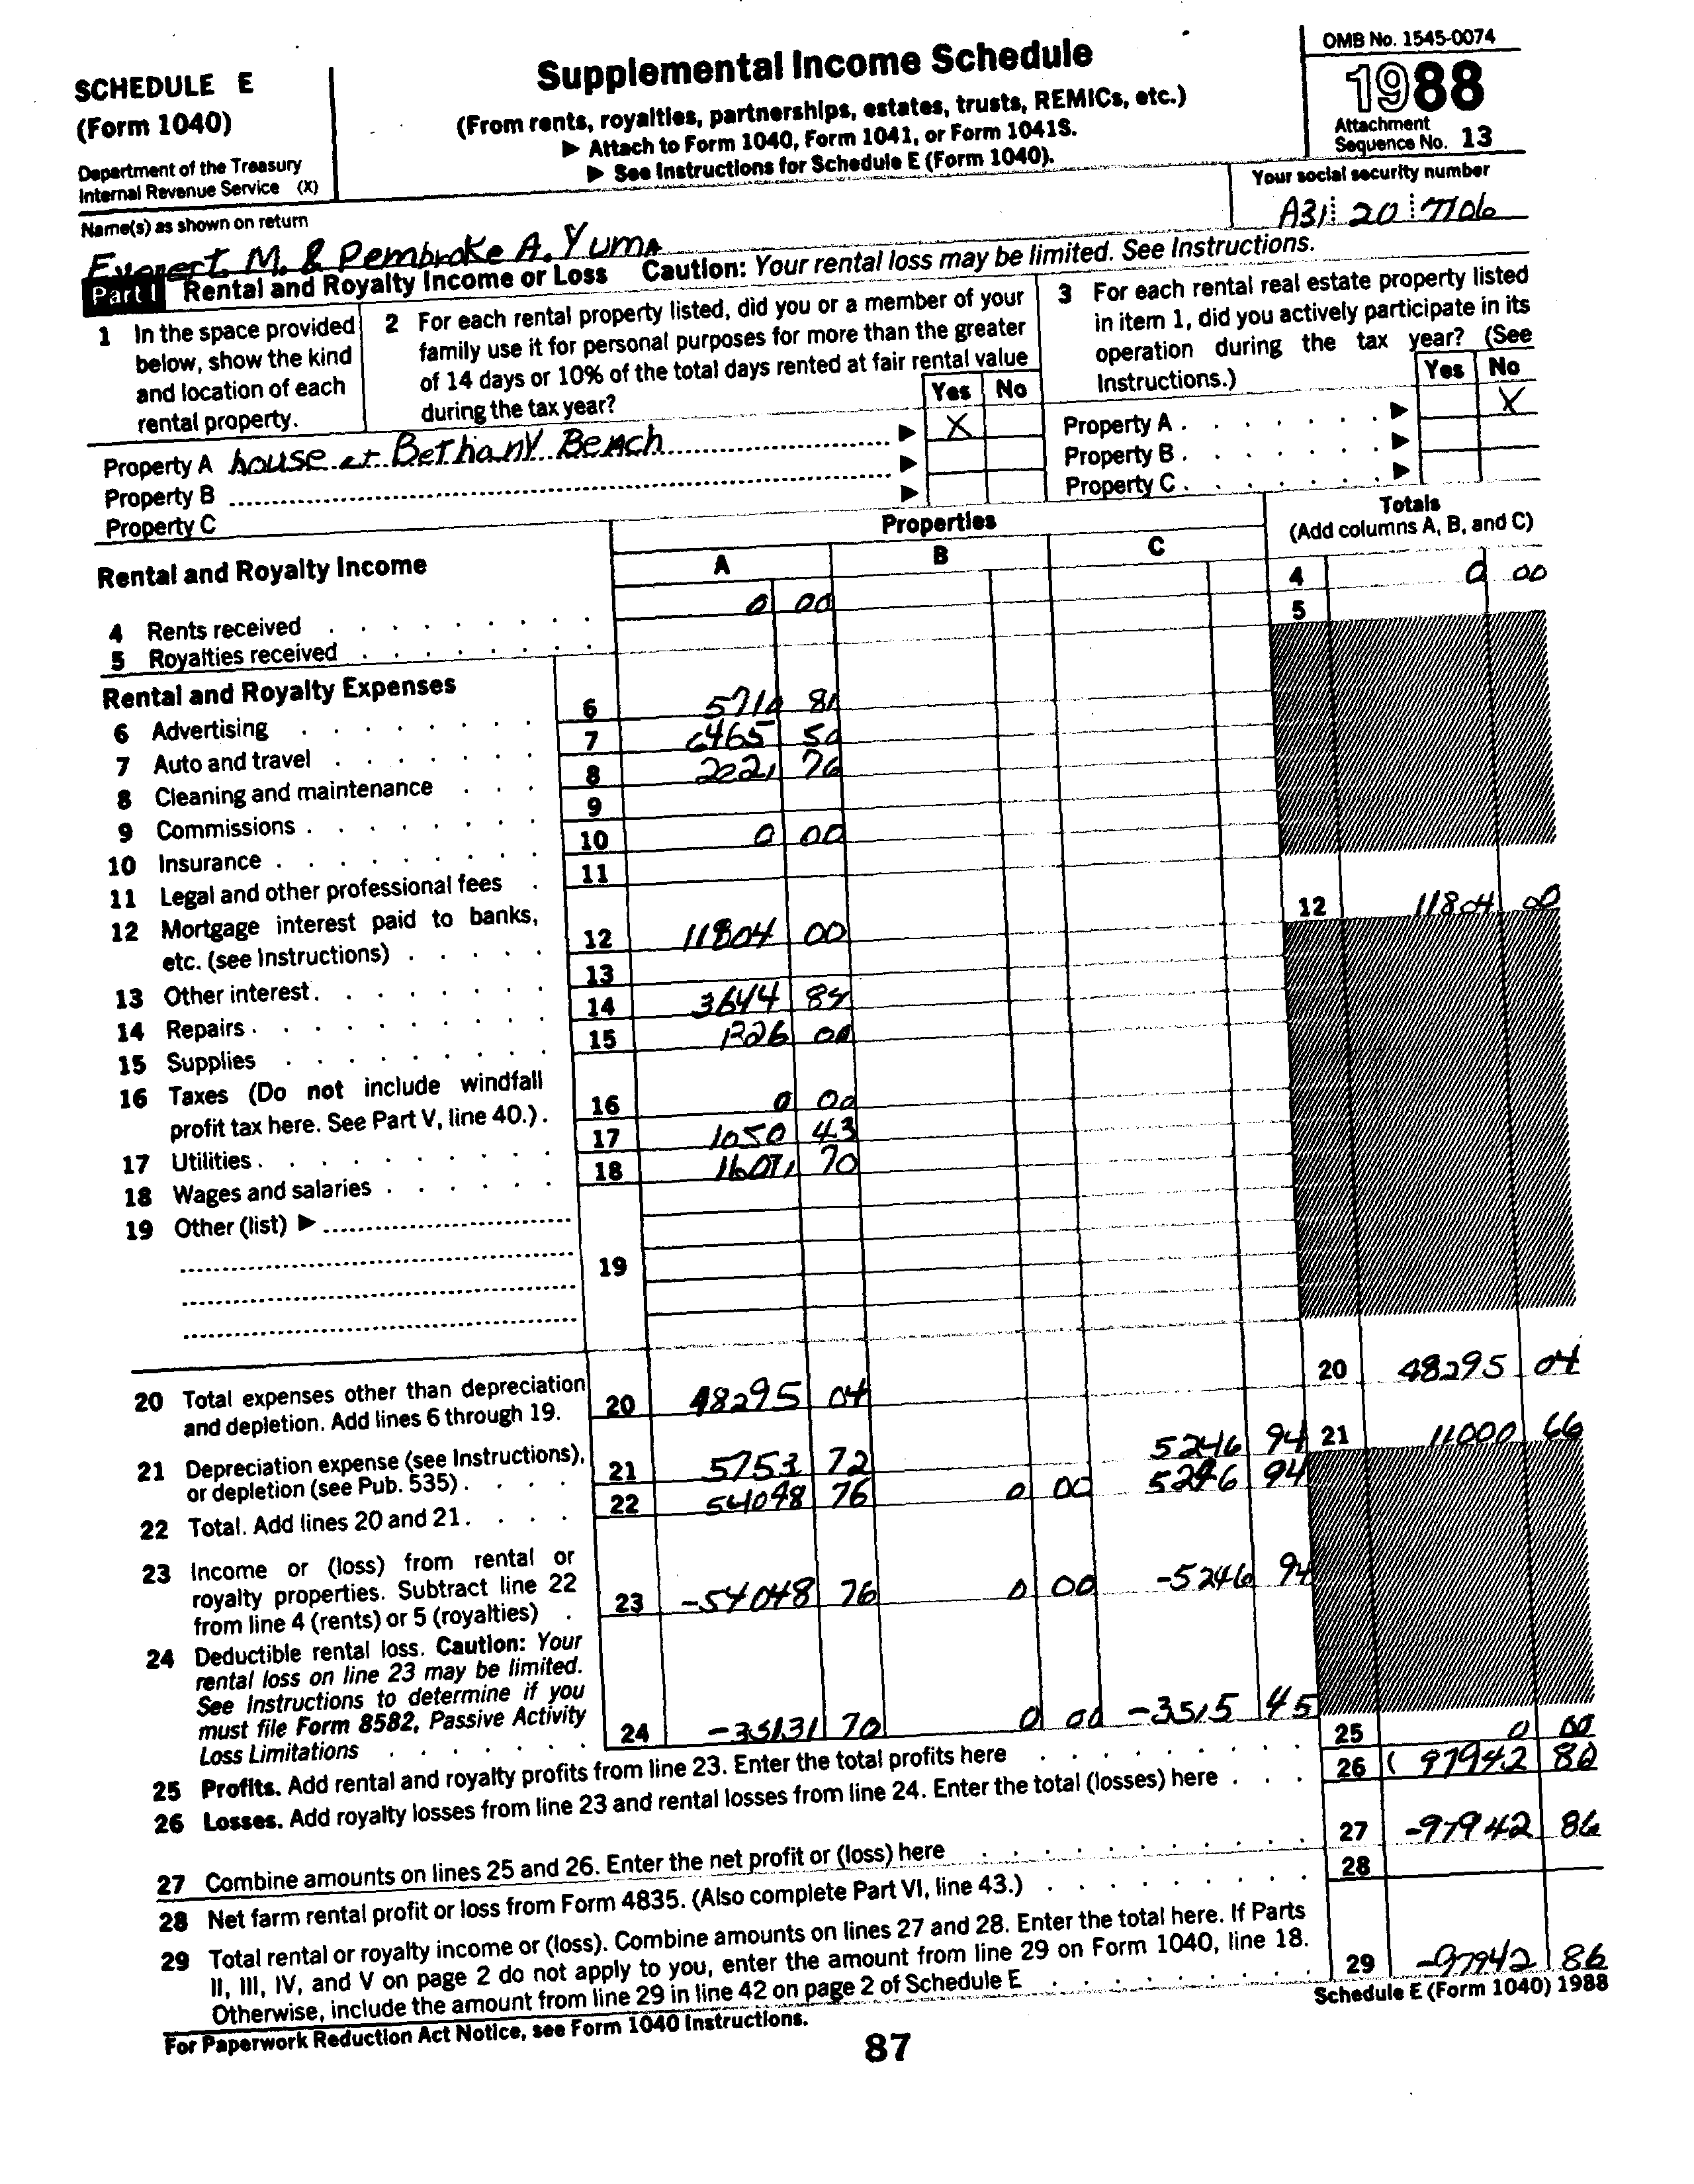 SCHEDULE E
(Form 1040)
Department of the Treasury
Internal Revenue Service (X)
Supplemental Income Schedule
(From rents, royalties, partnerships, estates, trusts, REMICs, etc.)
▶ Attach to Form 1040, Form 1041, or Form 1041S.
▶ See Instructions for Schedule E (Form 1040).
OMB No. 1545-0074
1988
Attachment
Sequence No. 13
Name(s) as shown on return
Your social security number
M. & Pembroke A. Yuma
A31 20 7706
Part I Rental and Royalty Income or Loss Caution: Your rental loss may be limited. See Instructions.
1 In the space provided
below, show the kind
and location of each
rental property.
2 For each rental property listed, did you or a member of your
family use it for personal purposes for more than the greater
of 14 days or 10% of the total days rented at fair rental value
during the tax year?
Yes No
3 For each rental real estate property listed
in item 1, did you actively participate in its
operation during the tax year? (See
Instructions.)
Yes No
Property A house at Bethany Beach ▶ X
Property B ▶
Property C ▶
Property A . . . . . . . ▶ X
Property B . . . . . . . ▶
Property C . . . . . . . ▶
Rental and Royalty Income
Properties
A B C
Totals
(Add columns A, B, and C)
4 Rents received 0 00 4 0 00
5 Royalties received 5
Rental and Royalty Expenses
6 Advertising 6
7 Auto and travel 7 50
8 Cleaning and maintenance 8 76
9 Commissions 9
10 Insurance 10 0 00
11 Legal and other professional fees 11
12 Mortgage interest paid to banks,
etc. (see Instructions) 12 11804 00 12 11804 00
13 Other interest 13
14 Repairs 14 3644
15 Supplies 15 1326 00
16 Taxes (Do not include windfall
profit tax here. See Part V, line 40.) 16 0 00
17 Utilities 17 1050 43
18 Wages and salaries 18 70
19 Other (list) ▶ 19
20 Total expenses other than depreciation
and depletion. Add lines 6 through 19. 20 48295 04 20 48295 04
21 Depreciation expense (see Instructions),
or depletion (see Pub. 535) 21 5753 72 5246 94 21 11000 66
22 Total. Add lines 20 and 21. 22 54048 76 0 00 5246 94
23 Income or (loss) from rental or
royalty properties. Subtract line 22
from line 4 (rents) or 5 (royalties) 23 -54048 76 0 00 -5246 94
24 Deductible rental loss. Caution: Your
rental loss on line 23 may be limited.
See Instructions to determine if you
must file Form 8582, Passive Activity
Loss Limitations 24 -35131 70 0 00 -3515 45
25 Profits. Add rental and royalty profits from line 23. Enter the total profits here 25 0 00
26 Losses. Add royalty losses from line 23 and rental losses from line 24. Enter the total (losses) here 26 ( 97942
27 Combine amounts on lines 25 and 26. Enter the net profit or (loss) here 27 -97942 86
28 Net farm rental profit or loss from Form 4835. (Also complete Part VI, line 43.) 28
29 Total rental or royalty income or (loss). Combine amounts on lines 27 and 28. Enter the total here. If Parts
II, III, IV, and V on page 2 do not apply to you, enter the amount from line 29 on Form 1040, line 18.
Otherwise, include the amount from line 29 in line 42 on page 2 of Schedule E 29 -97942 86
For Paperwork Reduction Act Notice, see Form 1040 Instructions.
Schedule E (Form 1040) 1988
87